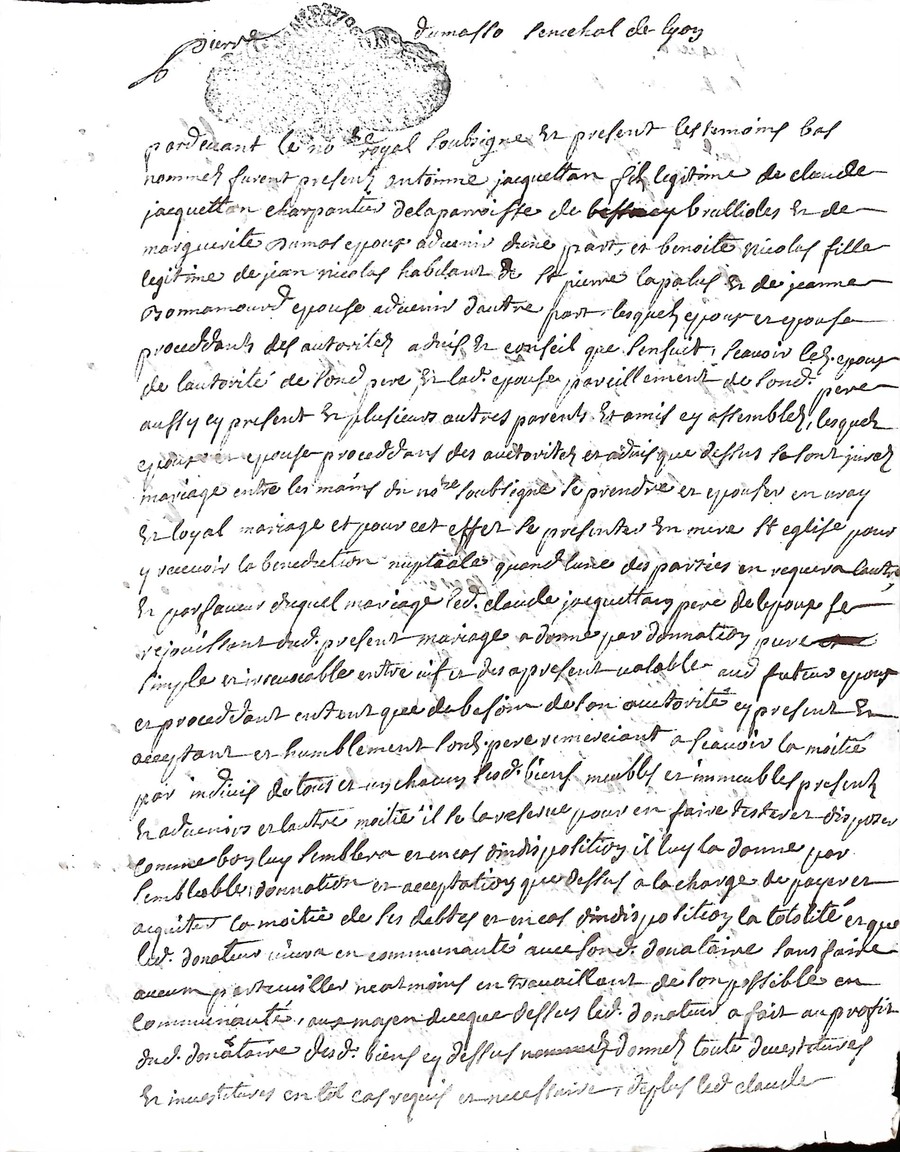 pierre dumasso senechal de lyon
pardevant le no.re royal soubsigne et present les temoins bas
nommez furent presentz antoinne jacquettan filz legitime de claude
jacquettan charpantier de la parroisse de brullioles et de
marguerite dumas epoux advenir dune part, et benoite nicolas fille
legitime de jean nicolas habitant de st pierre lapalus et de jeanne
bonnamourd epouse advenir dautre part, lesquels epoux et epouse
proceddants des autoritez advis et conseil que sensuit, scavoir led. epoux
de lautorité de sond pere et lad. epouse pareillement de sond. pere
aussy cy present et plusieurs autres parents et amis cy assemblez, lesquels
epoux et epouse proceddans des auctoritez et advis que dessus se sont jurez
mariage entre les mains du no.re soubsigne se prendre et epouser en vray
et loyal mariage et pour cet effet se presenter en mere st eglise pour
y recevoir la benediction nuptialle quand lune des parties en requera lautre
en par faveur duquel mariage led. claude jacquettan pere de lepoux se
rejouissant dud. present mariage a donne par donnation pure
simple et irrevocable entre vif et des a present valable aud futeur epoux
et proceddant entent que de besoin de son auctorité cy present et
acceptant et humblement sond. pere remerciant a scavoir la moitié
par indivis de tous et un chacuns sesd. biens meubles et immeubles presentz
et advenirs et lautre moitié il se la reserve pour en faire tester et disposer
comme bon luy semblera et en cas dindisposition il luy la donne par
semblable donnation et acceptation que dessus a la charge de payer et
acquiter la moitié de ses debtes et en cas dindisposition la totalité et que
led. donateur vivra en communauté avec sond. donataire sans faire
aucun particullier neatmoins en travaillant de son possible en
communauté, aux moyen de ce que dessus led. donateur a fait au profit
dud. donataire desd. biens cy dessus donnez toute devestitures
et investitures en tel cas requis et necessaire, de plus led claude